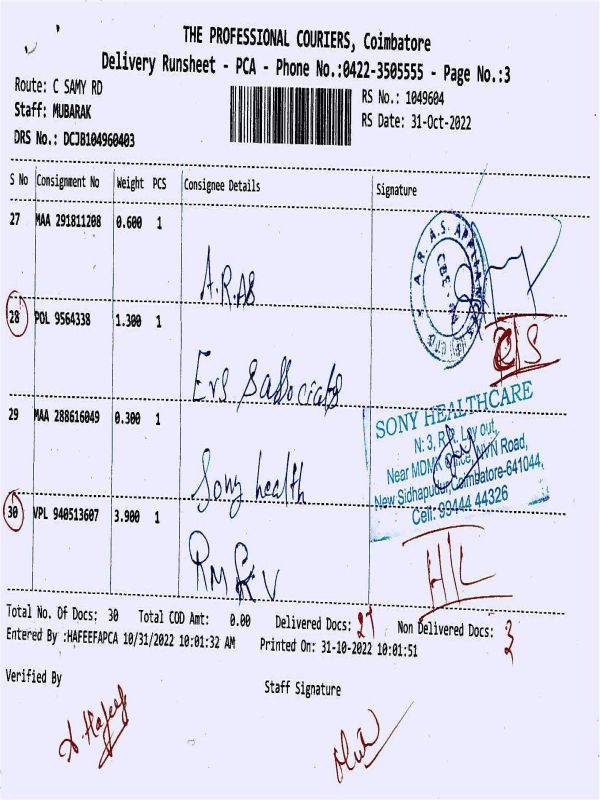 THE PROFESSIONAL COURIERS, Coimbatore
Delivery Runsheet - PCA - Phone No.:0422-3505555 - Page No.:3
Route: C SAMY RD
Staff: MUBARAK
DRS No.: DCJB104960403
RS No.: 1049604
RS Date: 31-Oct-2022
S No Consignment No Weight PCS Consignee Details Signature
27 MAA 291811208 0.600 1
A.R.AS
A.R.A.S. APPLIANCES
CBE
28 POL 9564338 1.300 1
Ers
29 MAA 288616049 0.300 1
Sony health
SONY HEALTHCARE
N: 3, R.R. Lay out,
Near MDMK Office, NVN Road,
New Sidhapudur, Coimbatore-641044,
Cell: 99444 44326
30 VPL 940513607 3.900 1
H/L
Total No. Of Docs: 30 Total COD Amt: 0.00 Delivered Docs: 27 Non Delivered Docs: 3
Entered By :HAFEEFAPCA 10/31/2022 10:01:32 AM Printed On: 31-10-2022 10:01:51
Verified By
Staff Signature